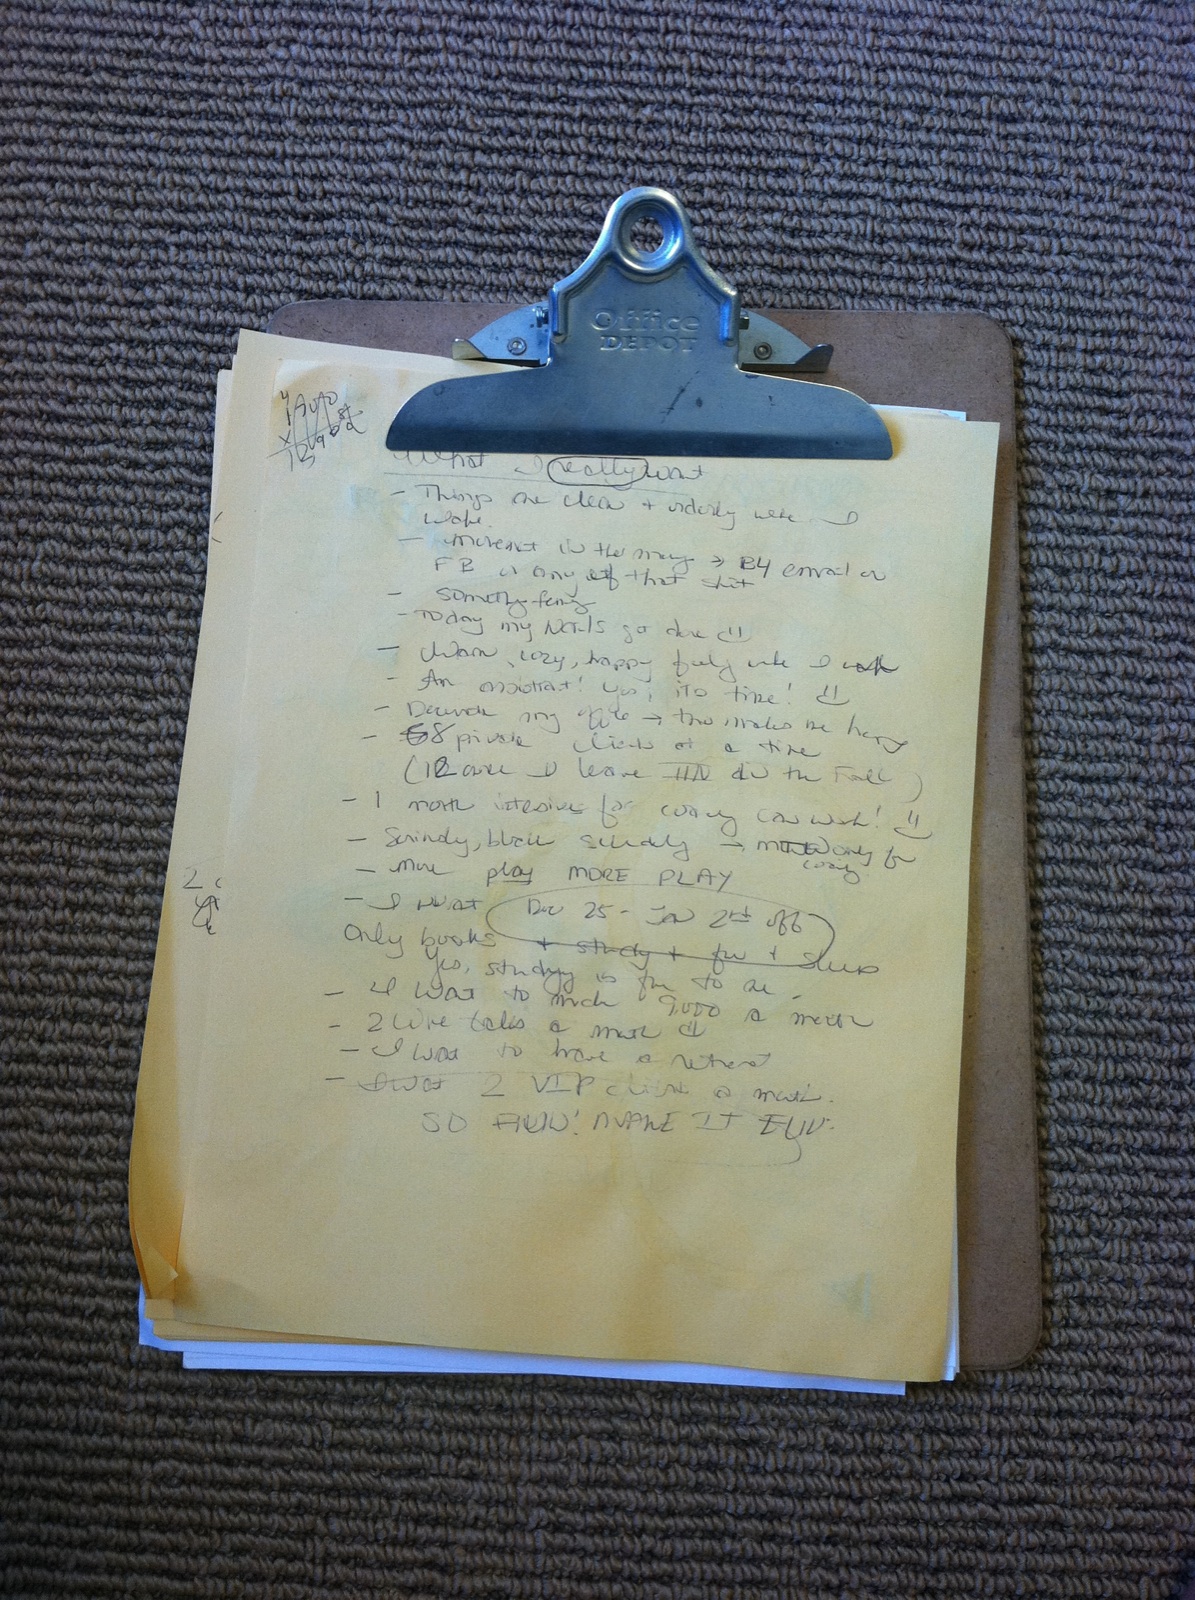 Office
DEPOT
What I really want
- Things are clean + orderly when I
wake.
- movement in the morning → B4 email or
FB or any of that shit
-
- Today my nails got done
- Warm, cozy, happy feeling when I
- An assistant! Yes, it's time!
- Decorate my office → this makes me happy
- 8 private clients at a time
(12 once I leave IIN in the Fall)
- 1 month intensives for
- Seriously, block scheduling → only for
- More play MORE PLAY
- I want Dec 25 - Jan 2nd off
Only books + study + fun + sleep
Yes, studying is fun to me.
- I want to make 9,000 a month
- 2 live talks a month
- I want to have a retreat
- I want 2 VIP clients a month.
SO FUN! MAKE IT FUN.
2